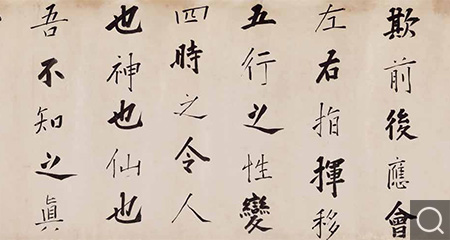 欺前後應會
左右指揮移
五行之性變
四時之令人
也神也仙也
吾不知之真